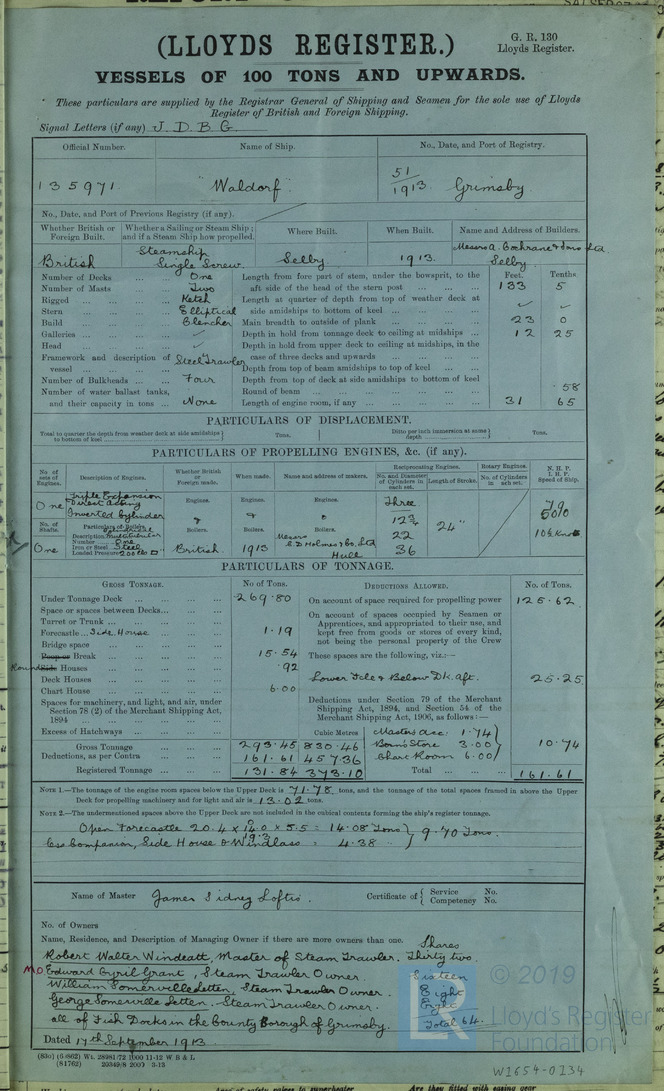 (LLOYDS REGISTER.)
G. R. 130
Lloyds Register.
VESSELS OF 100 TONS AND UPWARDS.
These particulars are supplied by the Registrar General of Shipping and Seamen for the sole use of Lloyds
Register of British and Foreign Shipping.
Signal Letters (if any) J. D. B. G.
Official Number. Name of Ship. No., Date, and Port of Registry.
135971. "Waldorf". 51/1913. Grimsby
No., Date, and Port of Previous Registry (if any).
Whether British or Foreign Built. Whether a Sailing or Steam Ship; and if a Steam Ship how propelled. Where Built. When Built. Name and Address of Builders.
British Steamship Single Screw Selby. 1913. Messrs A. Cochrane & Sons Ltd Selby.
Feet. Tenths
Number of Decks ... ... One Length from fore part of stem, under the bowsprit, to the aft side of the head of the stern post ... 133 5
Number of Masts ... ... Two
Rigged ... ... Ketch Length at quarter of depth from top of weather deck at side amidships to bottom of keel ... ✓ ✓
Stern ... ... Elliptical
Build ... ... Clencher Main breadth to outside of plank ... 23 0
Galleries ... ... ✓ Depth in hold from tonnage deck to ceiling at midships ... 12 25
Head ... ... ✓ Depth in hold from upper deck to ceiling at midships, in the case of three decks and upwards ...
Framework and description of vessel ... Steel Trawler Depth from top of beam amidships to top of keel ...
Number of Bulkheads ... Four Depth from top of deck at side amidships to bottom of keel
Number of water ballast tanks, Round of beam ... ... ·58
and their capacity in tons ... None Length of engine room, if any ... 31 65
PARTICULARS OF DISPLACEMENT.
Total to quarter the depth from weather deck at side amidships to bottom of keel Tons. Ditto per inch immersion at same depth Tons.
PARTICULARS OF PROPELLING ENGINES, &c. (if any).
No of sets of Engines. Description of Engines. Whether British or Foreign made. When made. Name and address of makers. Reciprocating Engines. No. and Diameter of Cylinders in each set. Length of Stroke. Rotary Engines. No. of Cylinders in each set. N. H. P. I. H. P. Speed of Ship.
One Triple Expansion Direct Acting Inverted Cylinder Engines. Engines. Engines. Three
No. of Shafts. Particulars of Boilers Boilers. Boilers. Boilers. 12¾ 24"
Description Multitubular
Number One 22
Iron or Steel Steel Messrs C. D. Holmes & Co. Ltd 10½ Knots
One Loaded Pressure 200 lbs British. 1913 Hull 36
PARTICULARS OF TONNAGE.
GROSS TONNAGE. No of Tons. DEDUCTIONS ALLOWED. No. of Tons.
Under Tonnage Deck ... 269·80 On account of space required for propelling power 125·62
Space or spaces between Decks... On account of spaces occupied by Seamen or
Turret or Trunk ... Apprentices, and appropriated to their use, and
Forecastle... Side House 1·19 kept free from goods or stores of every kind,
Bridge space ... not being the personal property of the Crew
Poop or Break ... 15·54 These spaces are the following, viz.:—
Round Side Houses ... ·92
Deck Houses ... Lower Fcle & Below Dk. aft. 25·25
Chart House ... 6·00
Spaces for machinery, and light, and air, under Section 78 (2) of the Merchant Shipping Act, 1894 ... Deductions under Section 79 of the Merchant Shipping Act, 1894, and Section 54 of the Merchant Shipping Act, 1906, as follows:—
Excess of Hatchways ... Cubic Metres Masters acc. 1·74
Gross Tonnage ... 293·45 830·46 Bosn's Store 3·00 10·74
Deductions, as per Contra ... 161·61 457·36 Chart Room 6·00
Registered Tonnage ... 131·84 373·10 Total ... 161·61
NOTE 1.—The tonnage of the engine room spaces below the Upper Deck is 71·78 tons, and the tonnage of the total spaces framed in above the Upper
Deck for propelling machinery and for light and air is 13·02 tons.
NOTE 2.—The undermentioned spaces above the Upper Deck are not included in the cubical contents forming the ship's register tonnage.
Open Forecastle 20.4 x x 5.5 = 14·08 Tons } 9·70 Tons.
less Companion, Side House & Windlass = 4·38
Name of Master James Sidney Loftis. Certificate of { Service No. Competency No.
No. of Owners
Name, Residence, and Description of Managing Owner if there are more owners than one. Shares
Robert Walter Windeatt, Master of Steam Trawler. Thirty two.
MO Edward Cyril Grant, Steam Trawler Owner. Sixteen
William Somerville Letten, Steam Trawler Owner. Eight
George Somerville Letten. Steam Trawler Owner. Eight
all of Fish Docks in the County Borough of Grimsby. Total 64.
Dated 17th September 1913
© 2019
Lloyd's Register
Foundation
W1654-0134